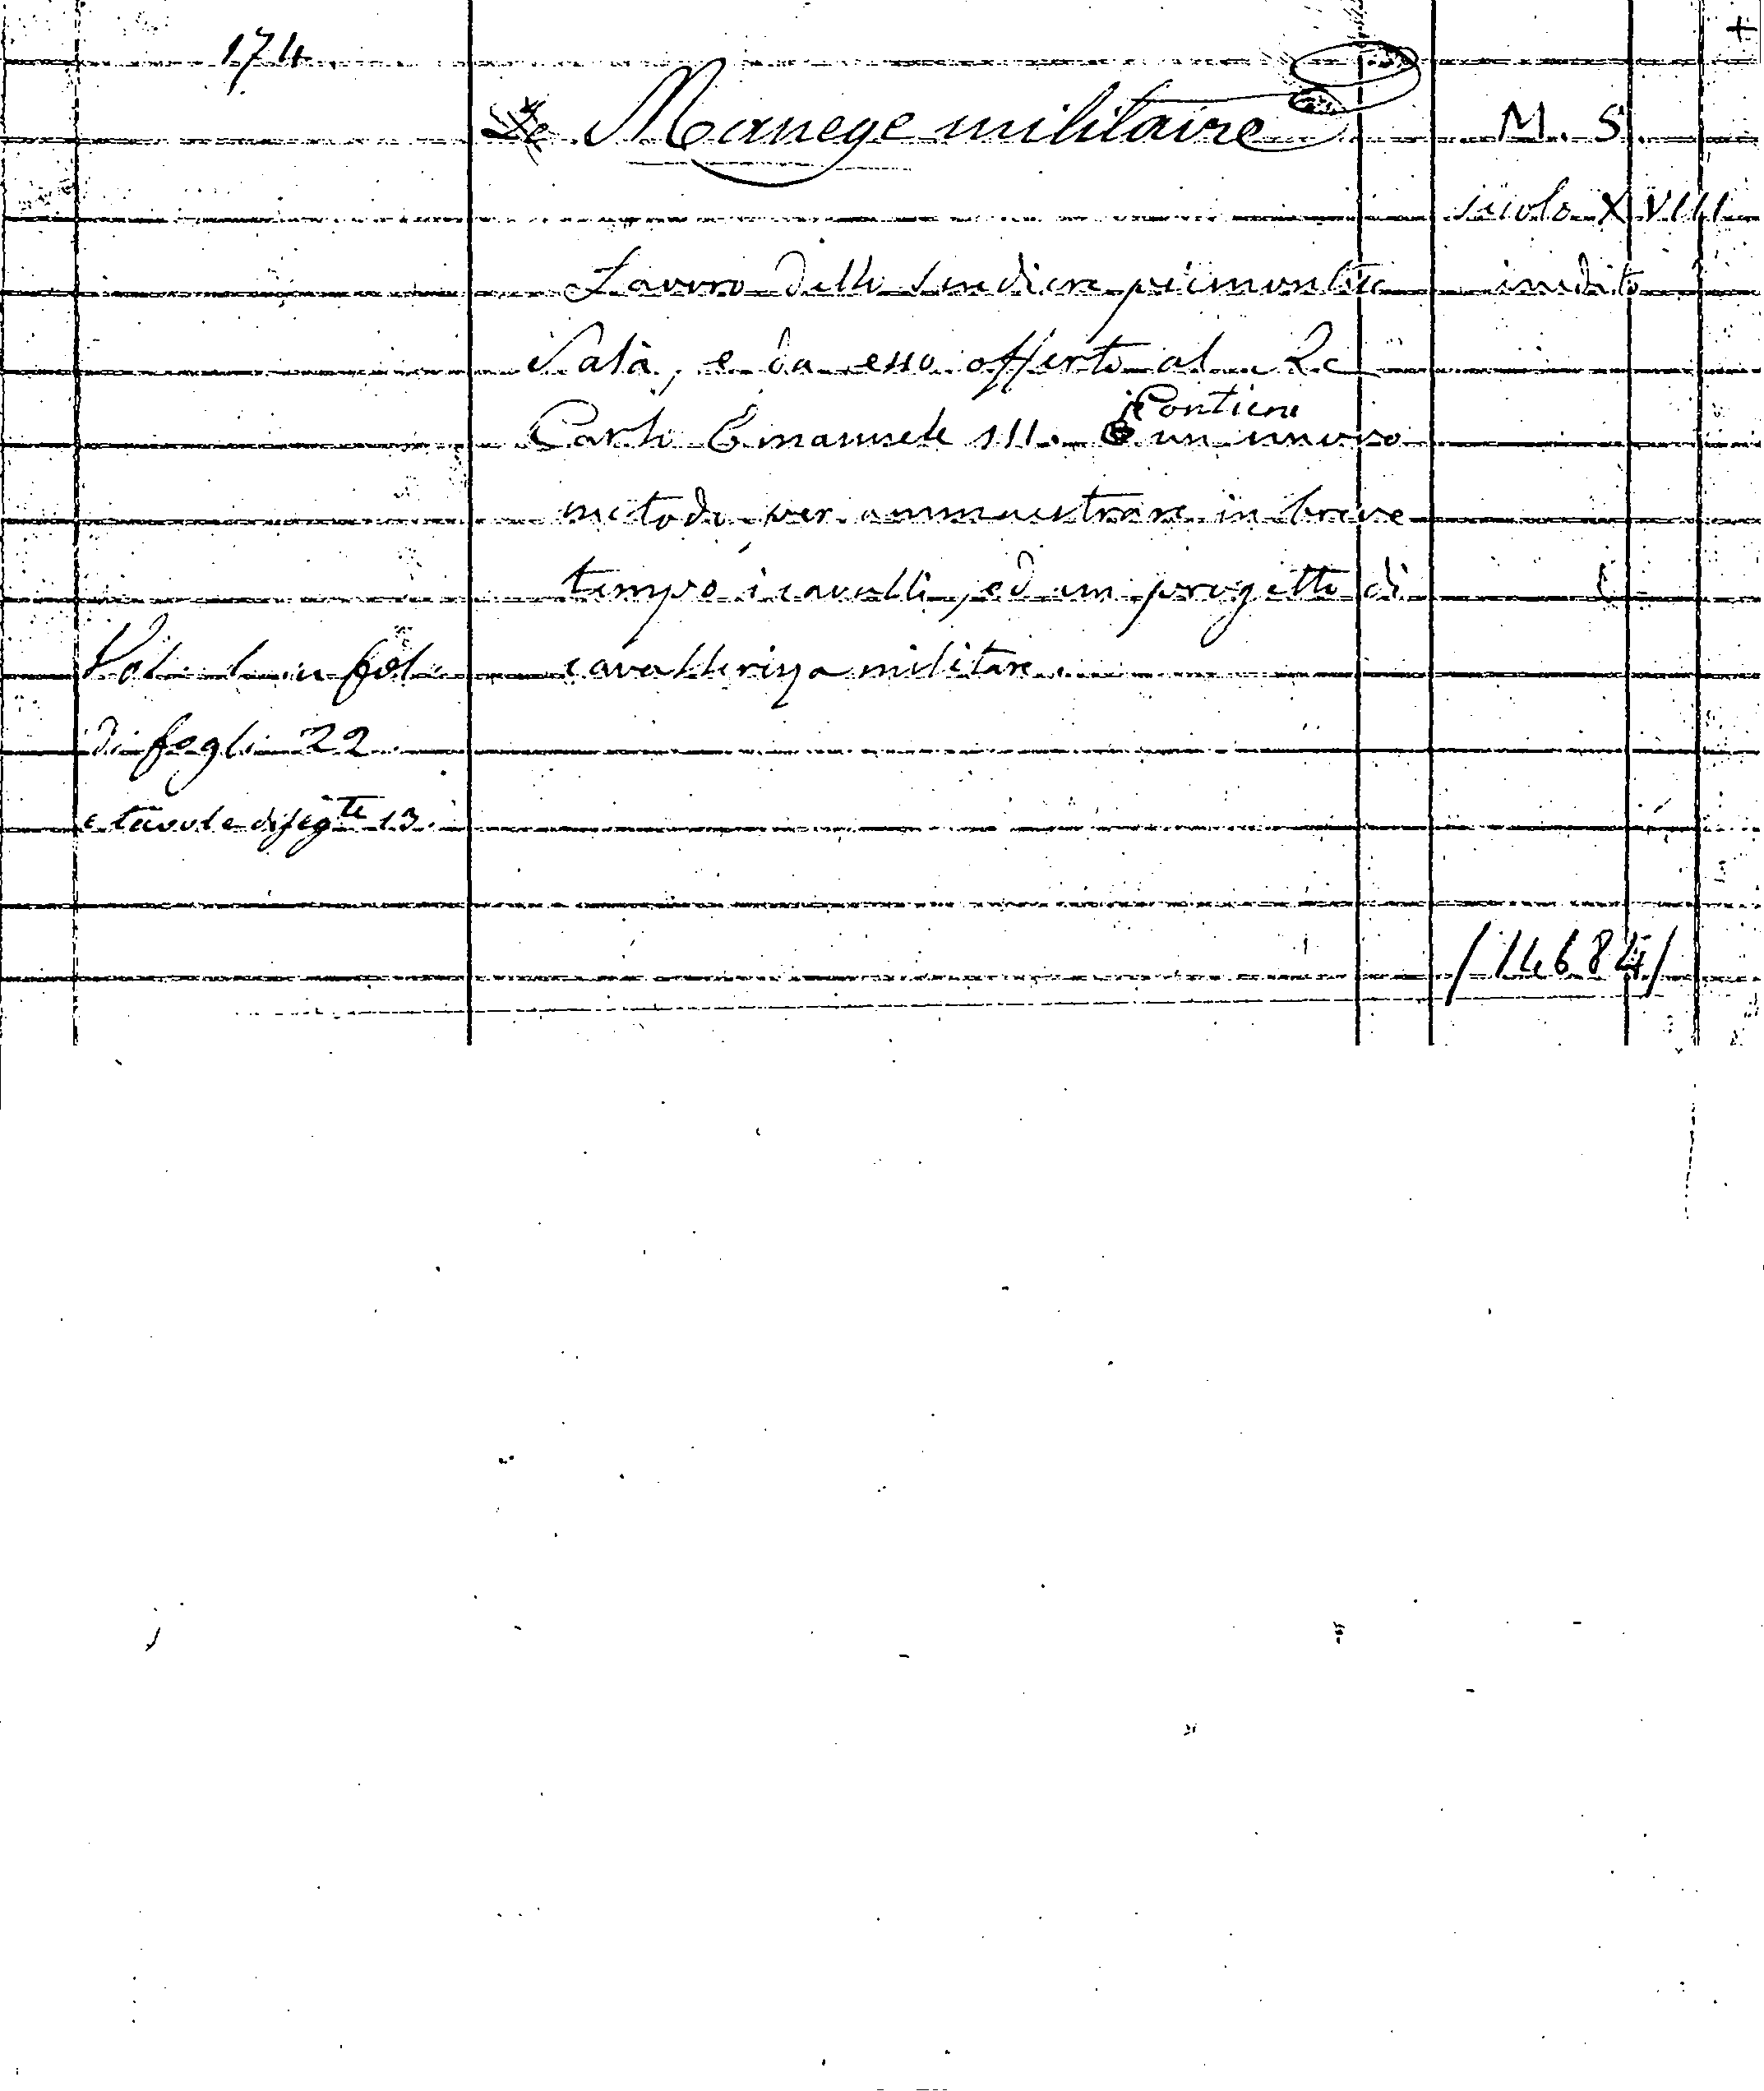 174
+
Le Manege militaire
M. S.
secolo XVIII
Lavoro dello scudiere piemontese
inedito
Salà, e da esso offerto al Re
Contiene
Carlo Emanuele III. È un nuovo
metodo per ammaestrare in breve
tempo i cavalli, ed un progetto di
Vol. 1 in fol.
cavallerizza militare.
di fogli 22
e tavole diseg.te 13.
/14684/